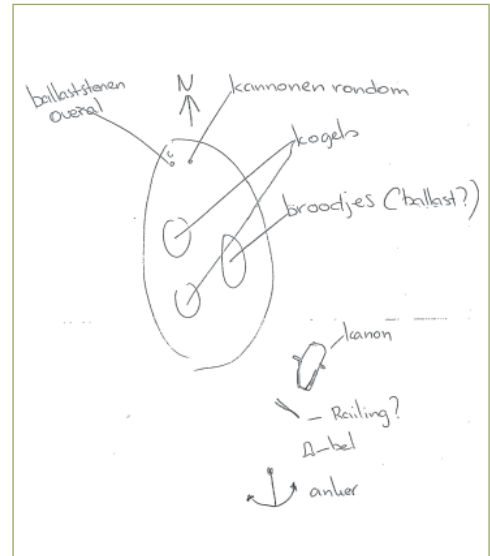 ballaststenen
overal
N
kannonen rondom
kogels
broodjes (ballast?)
kanon
- Railing?
- bel
anker